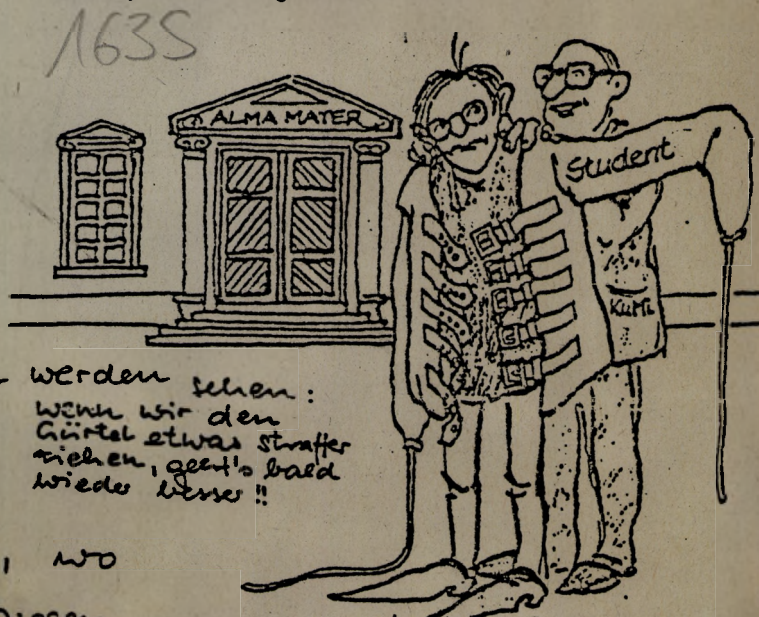 1635
ALMA MATER
Student
KuMi
werden sehen:
wenn wir den
Gürtel etwas straffer
ziehen, geht's bald
wieder besser!!
, wo